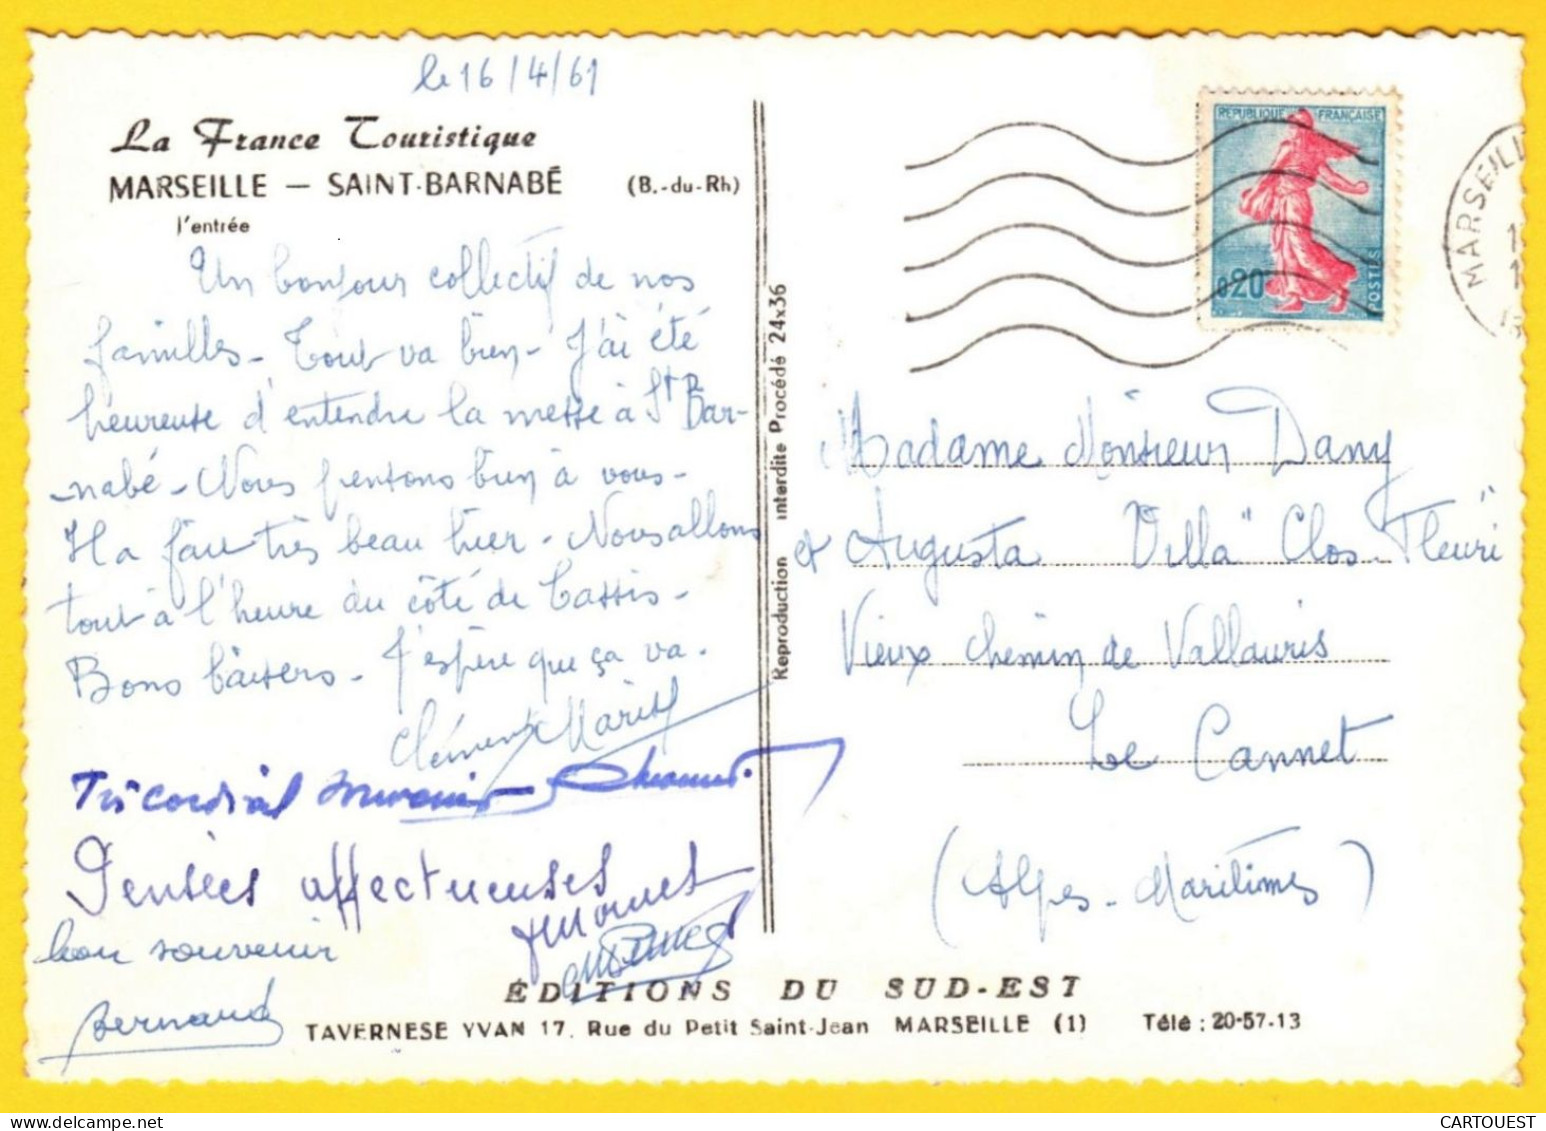 le 16/4/61
La France Touristique
MARSEILLE — SAINT-BARNABÉ (B.-du-Rh)
l'entrée
Un bonjour collectif de nos
familles - Tout va bien - J'ai été
heureuse d'entendre la messe à St Bar-
nabé - Nous pensons bien à vous -
Il a fait très beau hier - Nous allons
tout à l'heure du côté de Cassis -
Bons baisers - J'espère que ça va.
Très cordial souvenir
Pensées affectueuses
bon souvenir
Bernard
Reproduction interdite Procédé 24x36
REPUBLIQUE FRANÇAISE
0,20
POSTES
MARSEILL
Madame Monsieur Dany
et Augusta Villa "Clos Fleuri"
Vieux chemin de Vallauris
Le Cannet
(Alpes-Maritimes)
ÉDITIONS DU SUD-EST
TAVERNESE YVAN 17, Rue du Petit Saint-Jean MARSEILLE (1) Télé : 20-57-13
CARTOUEST